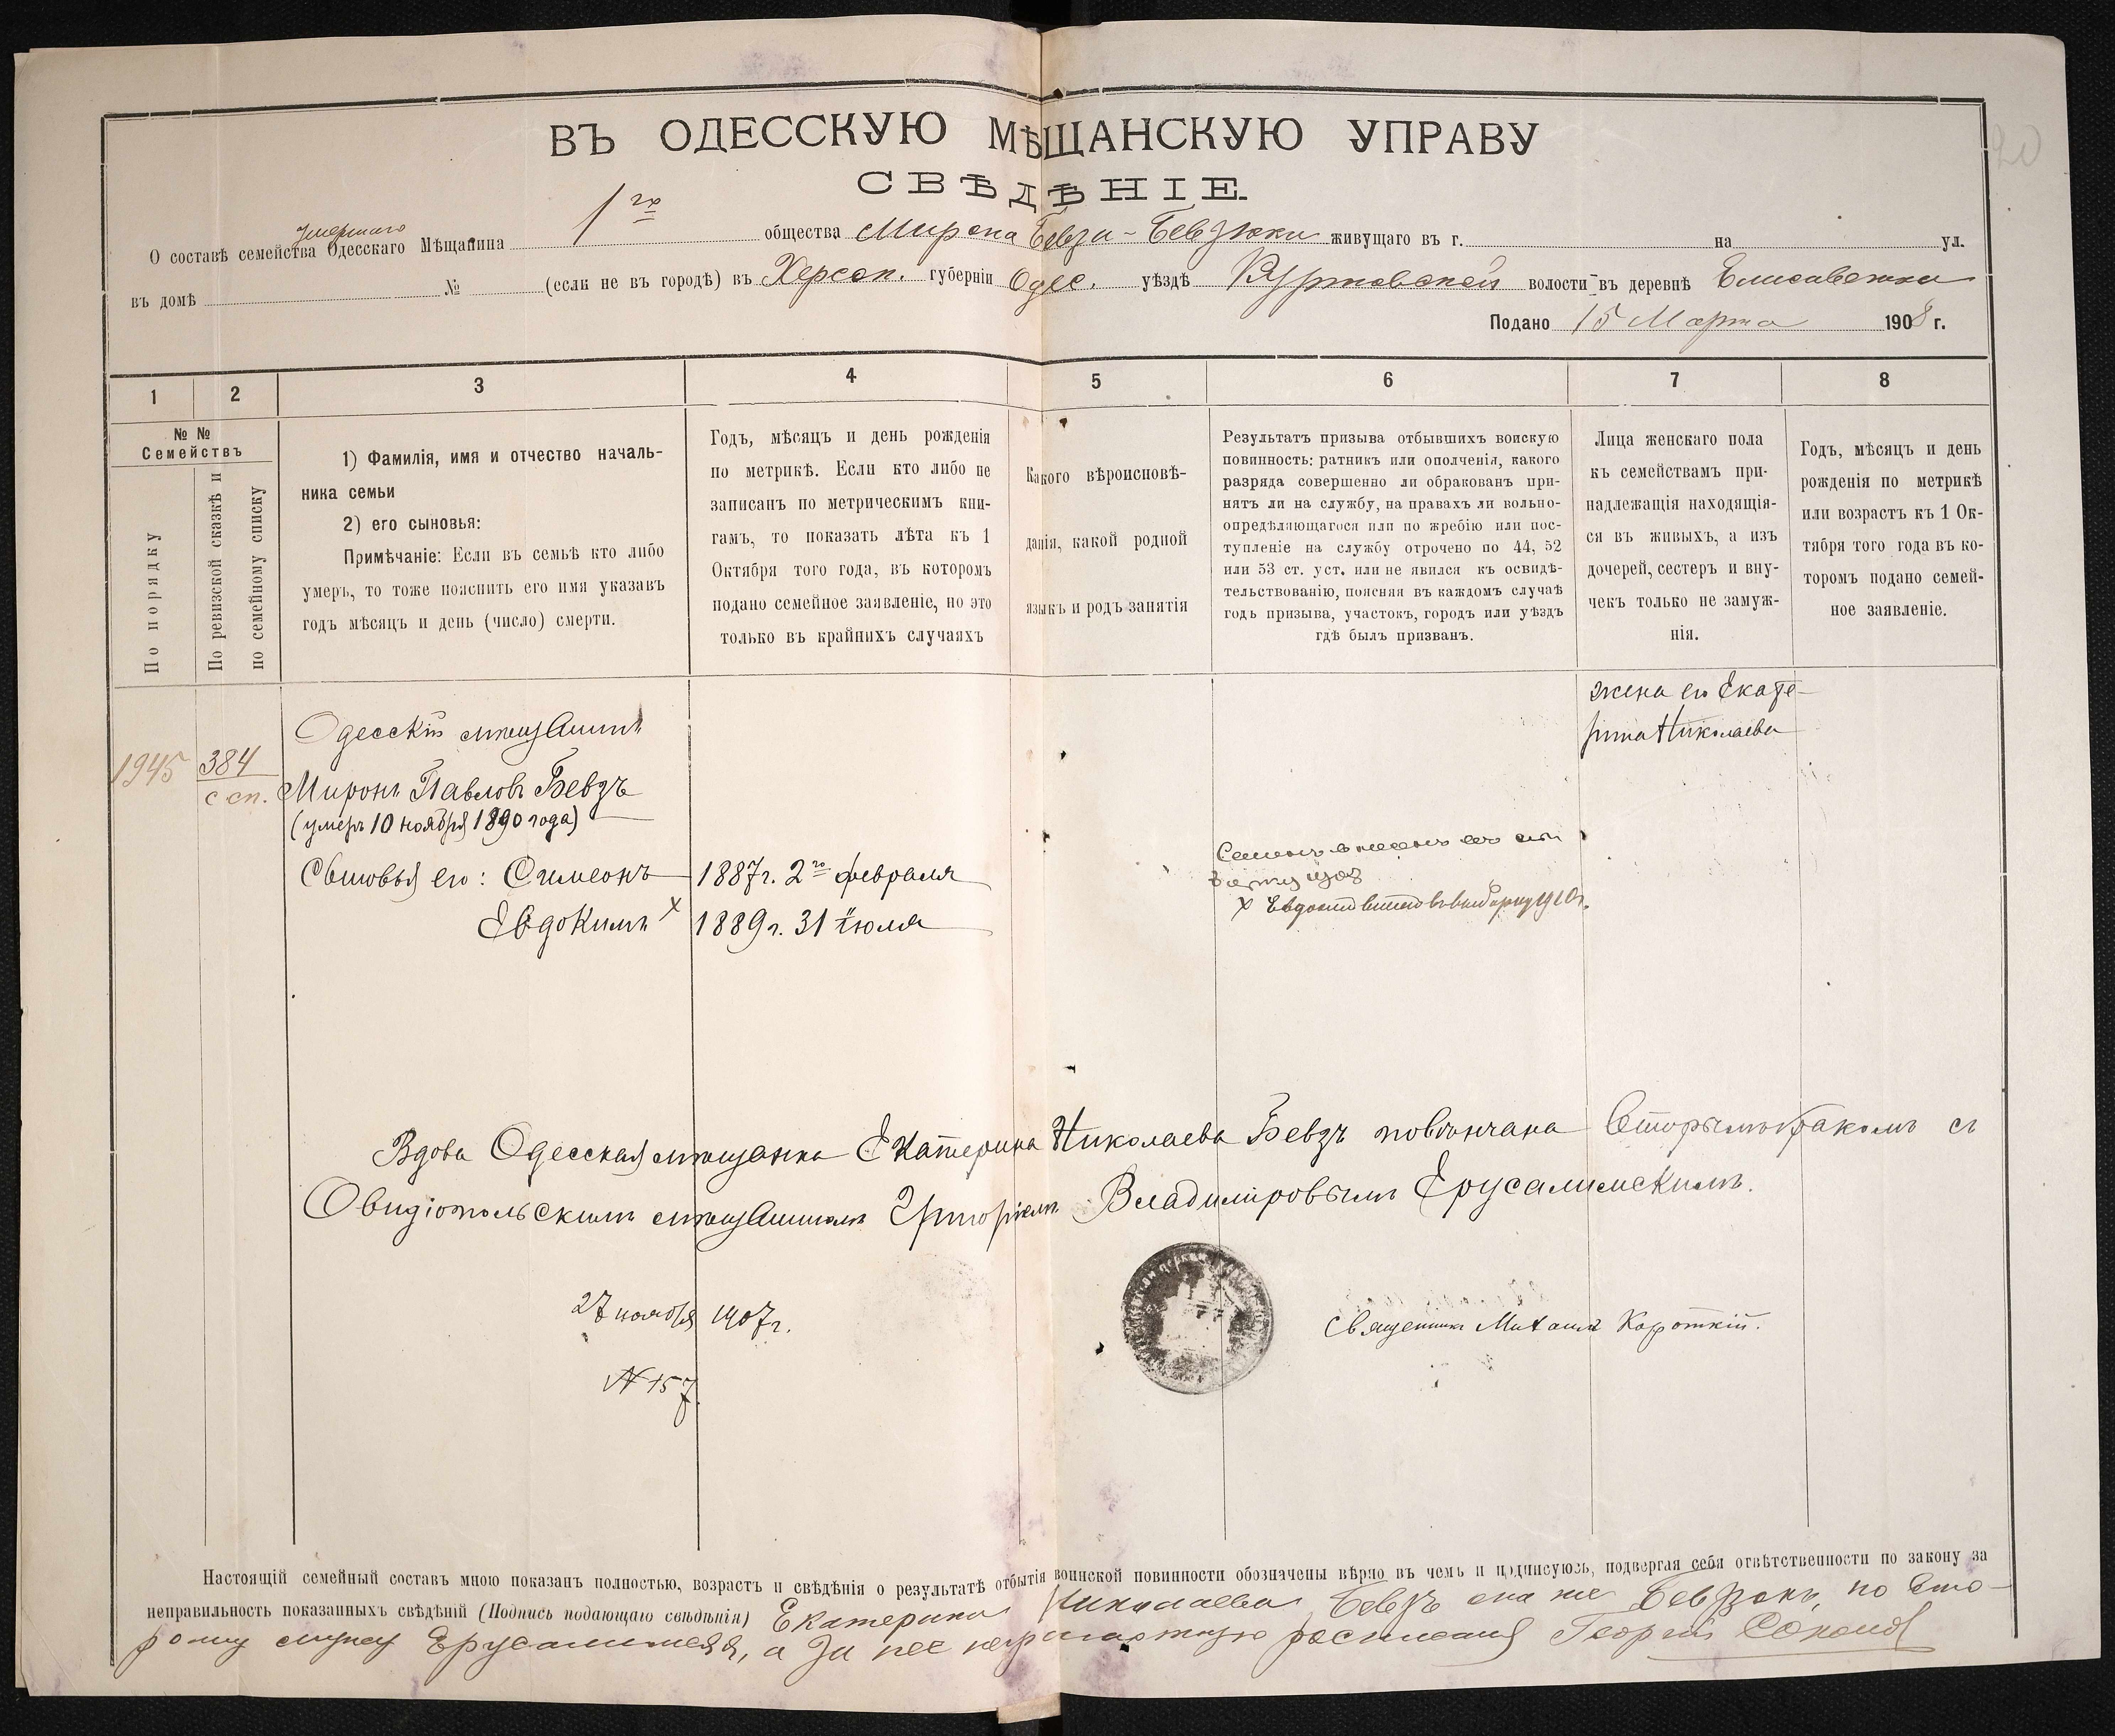 20
ВЪ ОДЕССКУЮ МѢЩАНСКУЮ УПРАВУ
СВѢДѢНІЕ.
умершаго
О составѣ семейства Одесскаго Мѣщанина 1го общества Мирона Бевза-Бевзюка живущаго въ г. на ул.
въ домѣ № (если не въ городѣ) въ Херсон. губерніи Одес. уѣздѣ Куртовской волости въ деревнѣ Елисаветка
Подано 15 Марта 1908 г.
1
2
3
4
5
6
7
8
№ №
Семействъ
По порядку
По ревизской сказкѣ и
по семейному списку
1) Фамилія, имя и отчество началь-
ника семьи
2) его сыновья:
Примѣчаніе: Если въ семьѣ кто либо
умеръ, то тоже пояснить его имя указавъ
годъ мѣсяцъ и день (число) смерти.
Годъ, мѣсяцъ и день рожденія
по метрикѣ. Если кто либо не
записанъ по метрическимъ кни-
гамъ, то показать лѣта къ 1
Октября того года, въ которомъ
подано семейное заявленіе, но это
только въ крайнихъ случаяхъ
Какого вѣроисповѣ-
данія, какой родной
языкъ и родъ занятія
Результатъ призыва отбывшихъ воискую
повинность: ратникъ или ополченія, какого
разряда совершенно ли обракованъ при-
нятъ ли на службу, на правахъ ли вольно-
опредѣляющагося или по жребію или пос-
тупленіе на службу отрочено по 44, 52
или 53 ст. уст. или не явился къ освидѣ-
тельствованію, поясняя въ каждомъ случаѣ
годъ призыва, участокъ, городъ или уѣздъ
гдѣ былъ призванъ.
Лица женскаго пола
къ семействамъ при-
надлежащія находящія-
ся въ живыхъ, а изъ
дочерей, сестеръ и вну-
чекъ только не замуж-
нія.
Годъ, мѣсяцъ и день
рожденія по метрикѣ
или возрастъ къ 1 Ок-
тября того года въ ко-
торомъ подано семей-
ное заявленіе.
жена его Екате-
рина Николаева
Одесскій мѣщанинъ
1945 384
с сп.
Миронъ Павловъ Бевзъ
(умеръ 10 ноября 1890 года)
Сыновья его: Симеонъ 1887г. 2го февраля
Евдокимъ х 1889г. 31 іюля
Семенъ
х Евдокимъ въ выборку 1910г.
Вдова Одесская мѣщанка Екатерина Николаева Бевзъ повѣнчана вторымъ бракомъ съ
Овидіопольскимъ мѣщаниномъ Григоріемъ Владиміровымъ Ерусалимскимъ.
27 ноября 1907г.
Священникъ Михаилъ Короткій.
№ 157
Настоящій семейный составъ мною показанъ полностью, возрастъ и свѣдѣнія о результатѣ отбытія воинской повинности обозначены вѣрно въ чемъ и подписуюсь, подвергая себя отвѣтственности по закону за
неправильность показанныхъ свѣдѣній (Подпись подающаго свѣдѣнія) Екатерина Николаева Бевзъ она же Бевзюкъ, по вто-
рому мужу Ерусалимская, а за нее неграмотную росписался Георгій